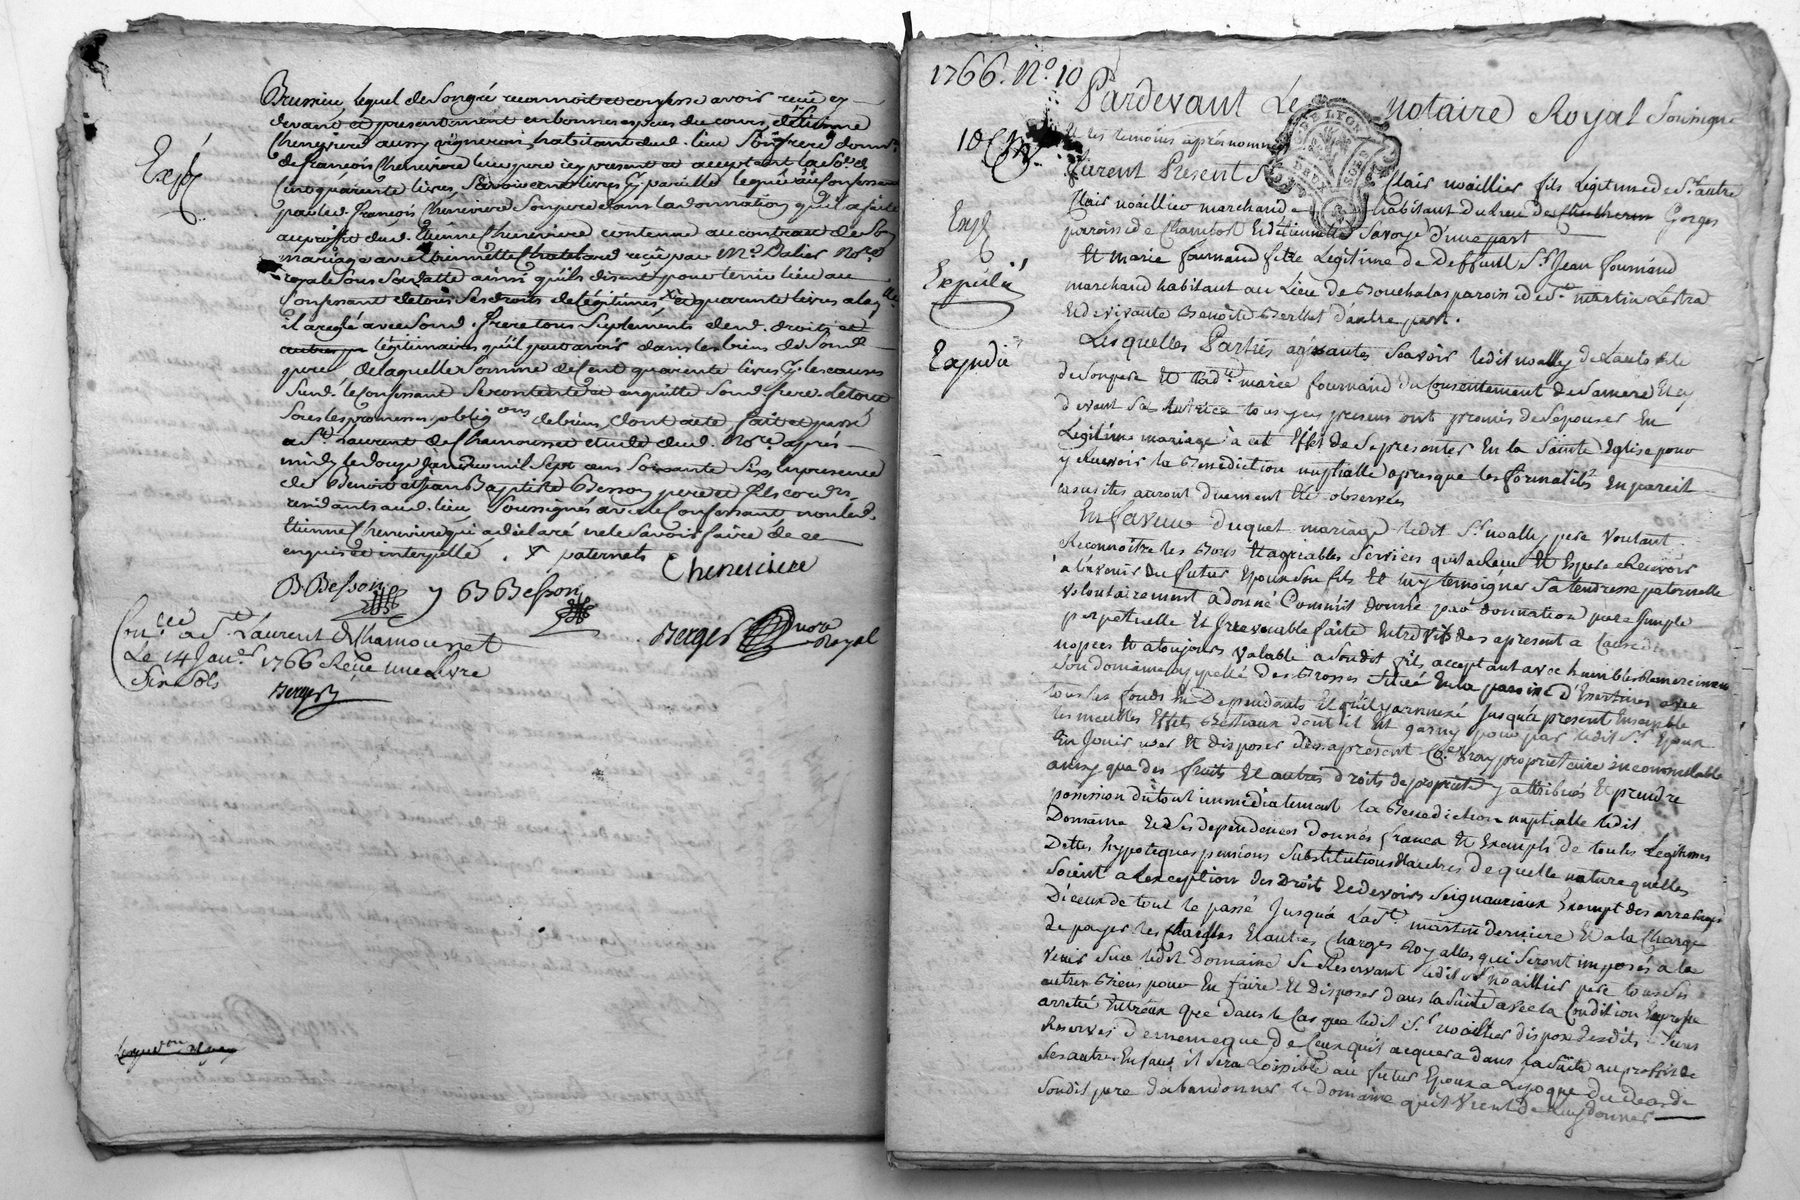 Expé
Brussieu, lequel de son gré reconnoit et confesse avoir reçu cy
devant et présentement en bonnes espèces du cours, d'étienne
Cheneviere aussy vigneron, habitant dud. lieu Son frere donat.re
de francois Cheneviere leur pere icy present et acceptant la So.e de
Cent quarante livres, Scavoir cent livres
par led. francois Cheneviere Son pere dans la donnation qu'il a faite
au proffit dud. Etienne Cheneviere contenue au contrat de Son
mariage avec Etiennette Chatelard reçu par M.e Dalier No.re
royal Sous Sa datte ainsi qu'ils disent pour tenir lieu au
Confessant de tous Ses droits de légitimes, et quarante livres à laq.lle
il a reglé avec Sond. frere tous Supléments desd. droits et
légitimaires qu'il peut avoir dans les biens de Sond.
pere de laquelle Somme de Cent quarante livres les causes
Susd. le Confessant Se contente et en quitte Sond. frere. Le tout
Sous les promesses, obligons de biens, dont acte, fait et passé
a S.t Laurent de Chamousset etude dud. No.re après
midy le douze Janvier mil Sept cens Soixante Six, en presence
de Benoit et Jean Baptiste Besson pere et fils cord.rs
residants aud. lieu Soussignés avec le Confessant non led.
Etienne Cheneviere qui a déclaré ne le Savoir faire de ce
enquis et interpellé. x paternels
Cheneviere
B Besson J B Besson
Berger no.re Royal
Con.lée a S.t Laurent de Chamousset
Le 14 Janv.er 1766 Reçu une livre
Six Sols
Berger
1766. N.o 10
Pardevant Le Notaire Royal Soussigné
Et les temoins après nommés
furent Presents
Expé
Expédié
Expédié
DE LYON
DEUX SOLS
Clair noaillier fils Légitime de S.r autre
Clair noaillier marchand habitant du lieu des Gorges
paroisse de Chambost Et d'Etiennette Savoye d'une part
Et marie fournand fille Légitime de Deffunt S.r Jean fournand
marchand habitant au Lieu de Bouchalas paroisse de S.t martin Lestra
Et de vivante Benoite Berthet d'autre part.
Lesquelles Parties agissantes Scavoir ledit noailly de L'autorité
de Son pere Et Lad.te marie fournand du Consentement de Sa mere Et cy
devant Sa tutrice tous icy presens ont promis de S'epouser En
Legitime mariage à cet Effet de Se presenter En la Sainte Eglise pour
y Recevoir la Benediction nuptialle apres que les formalités En pareil
cas usités auront duement Eté observées
En faveur duquel mariage ledit S.r noailly pere voulant
Reconnoitre les Bons Et agréables Services qu'il a Recu Et Espere Recevoir
à l'avenir du futur Epoux Son fils Et luy temoigner Sa tendresse paternelle
volontairement a donné Comm'il donne par donnation pure Simple
perpetuelle Et Irrevocable faite Entre Vifs des apresent a Cause de
nopces Et a toujours valable a Sondit fils acceptant avec humbles Remerciemens
Son domaine appellé des Grosses Situé En la paroisse d'Essertines avec
tous les fonds En Dependants Et qu'il y a annexé Jusqu'a present Ensemble
les meubles Effets Bestiaux dont il Est garny pour par ledit S.r Epoux
En Jouir user Et disposer des apresent Co.e vray proprietaire incommutable
ainsy que des fruits Et autres droits de proprieté y attribués Et prendre
possession du tout immédiatement la Benediction nuptialle ledit
Domaine Et Ses dependences donnés francs Et Exempts de toutes Legitimes
Dettes hypoteques pensions Substitutions Et autres de quelle nature qu'elles
Soient a L'exception des Droits Et devoirs Seigneuriaux Exempt des arrerages
D'iceux de tout le passé Jusqu'a La S.t martin derniere Et a la Charge
de payer les Et autres Charges Royalles qui Seront imposés à l'a
venir Sur ledit Domaine Se Reservant ledit S.r noaillier pere tous Ses
autres Biens pour En faire Et Disposer dans la Suite avec la Condition Expresse
arreté Entreux que dans le Cas que ledit S.r noaillier dispose desdits Biens
Reservés de meme que de Ceux qu'il acquera dans la Suite au proffit de
Ses autres Enfans il Sera Loisible au futur Epoux a L'epoque du deces de
Sondit pere d'abandonner le domaine qu'il Vient de Luy donner